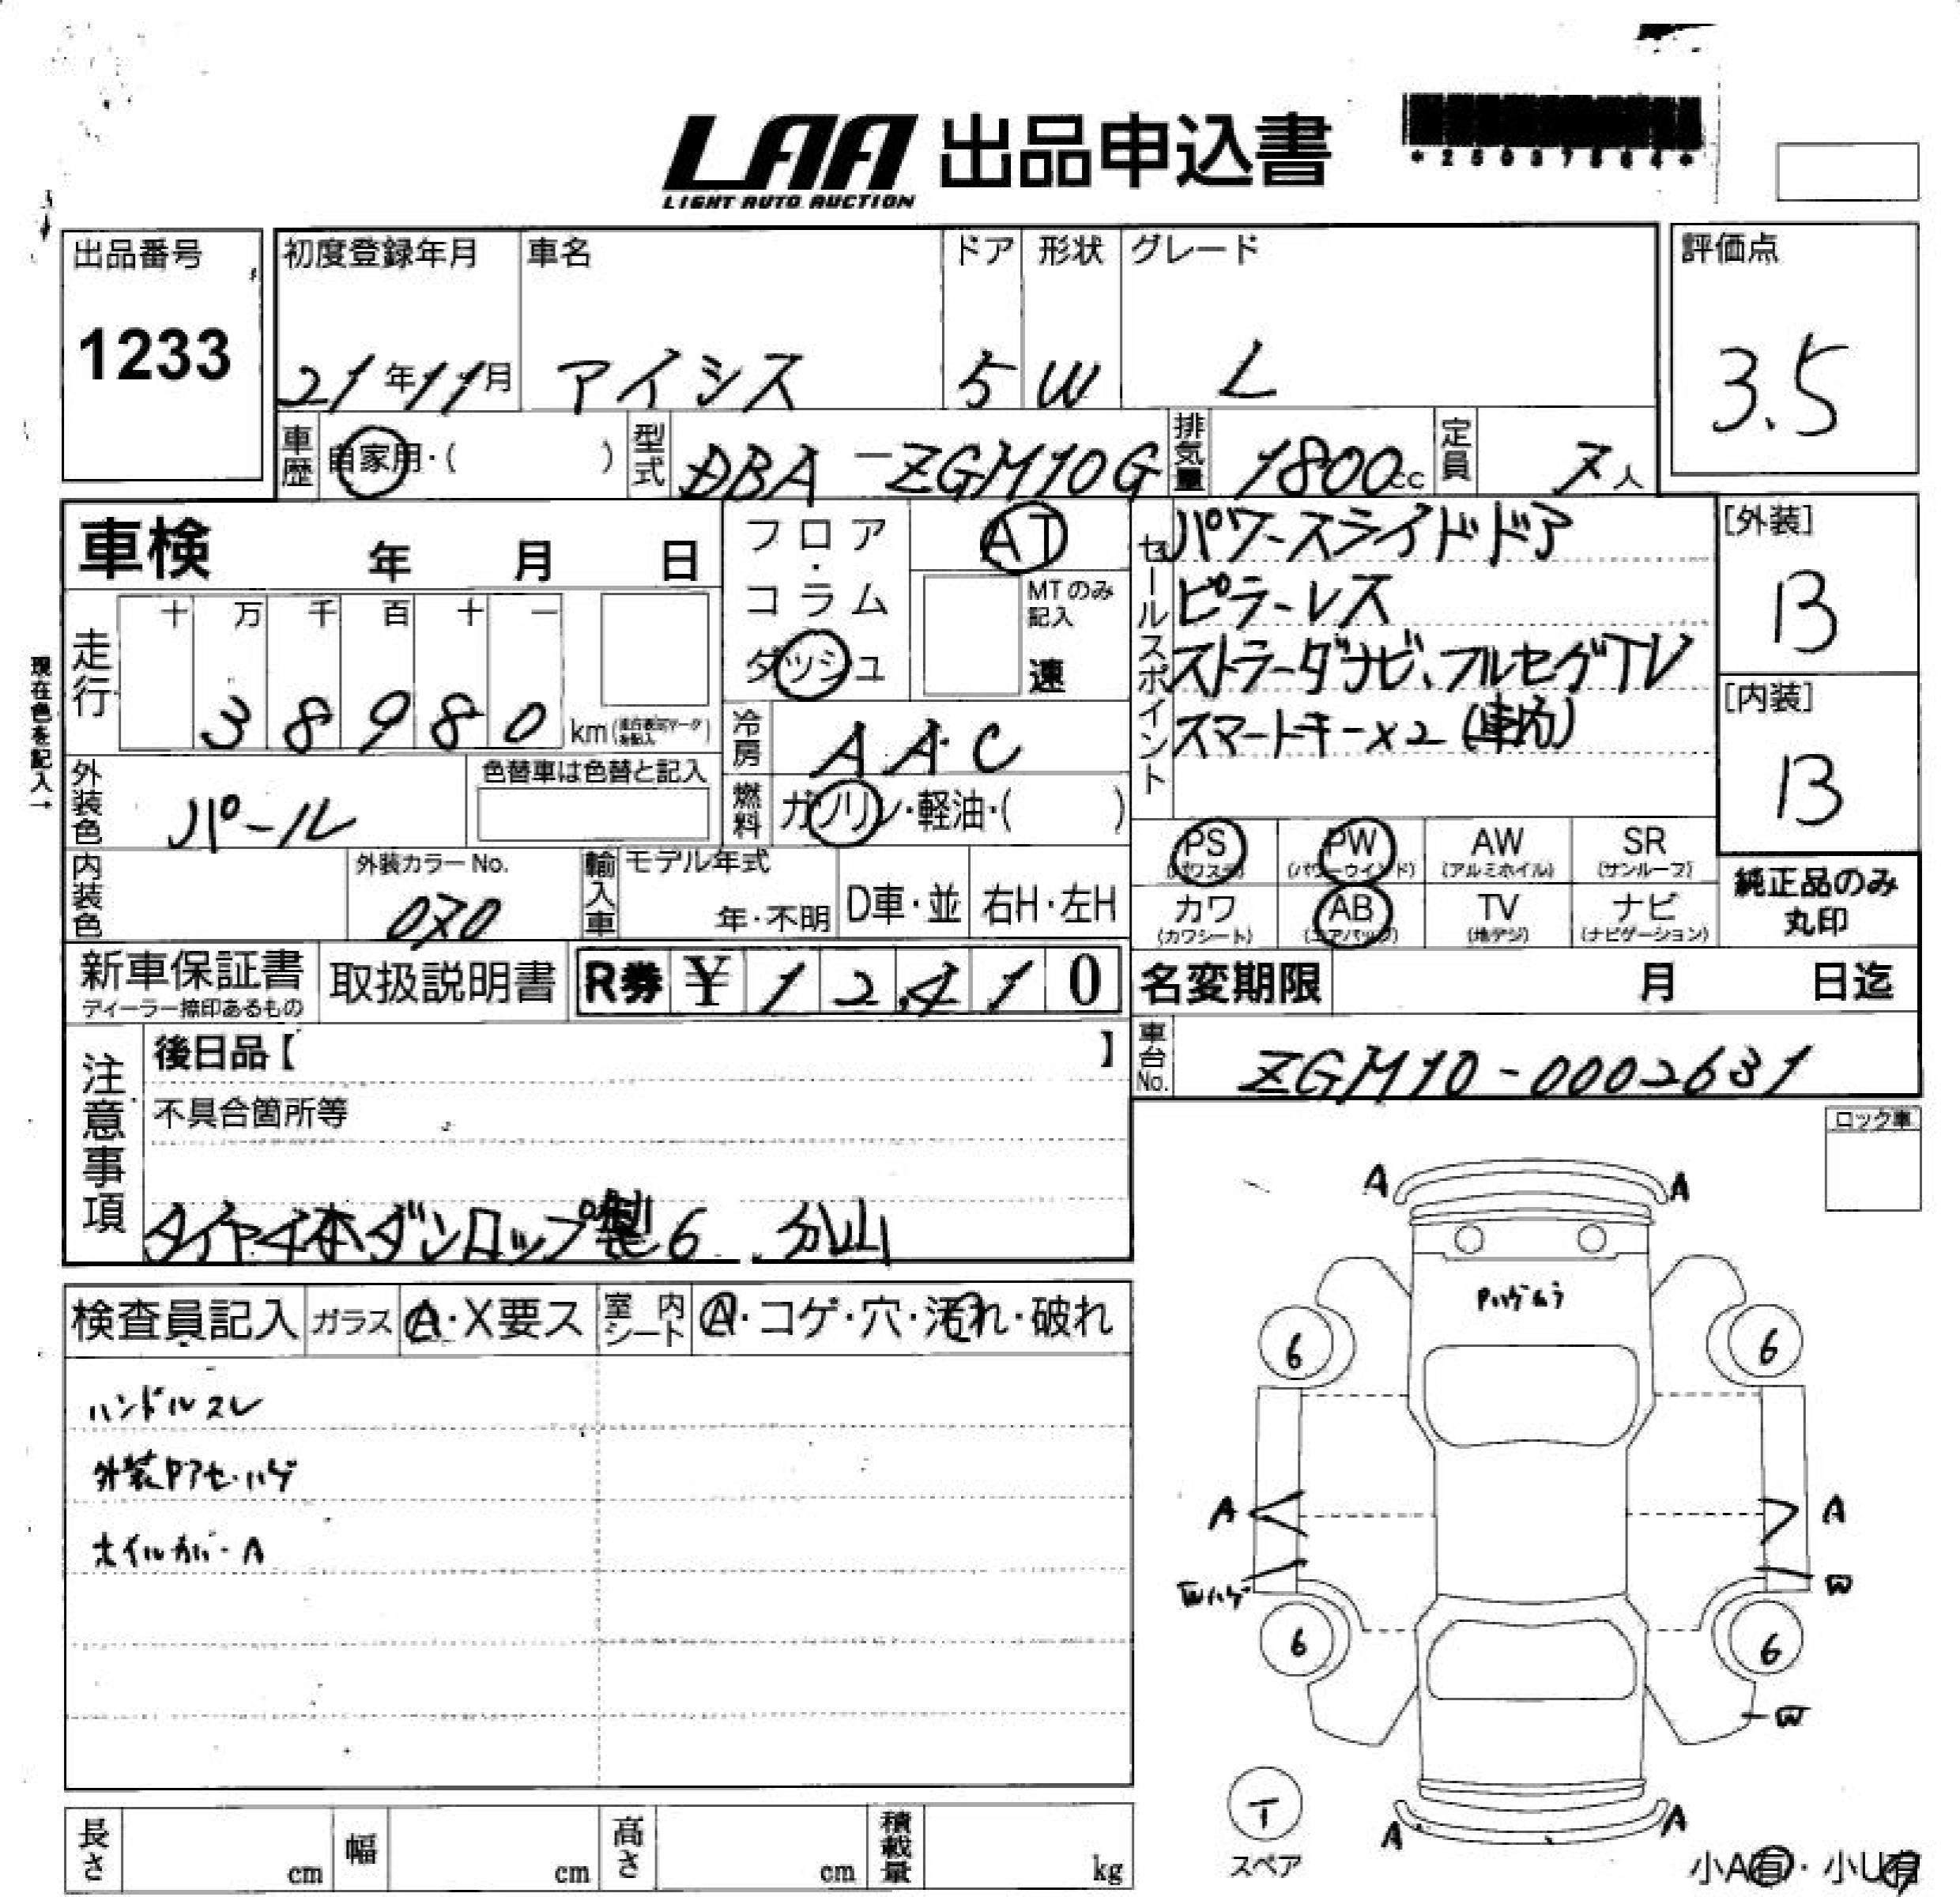 LAA 出品申込書
LIGHT AUTO AUCTION
出品番号
1233
初度登録年月
21年11月
車名
アイシス
ドア
5
形状
W
グレード
L
評価点
3.5
車歴 自家用・( )
型式 DBA-ZGM10G
排気量 1800cc
定員 7人
車検 年 月 日
現在色を記入→
走行 十 万 千 百 十 一
38980 km
フロア・コラム
ダッシュ
AT
MTのみ記入
速
冷房 AAC
燃料 ガソリン・軽油・( )
セールスポイント
パワースライドドア
ピラーレス
ストラーダナビ、フルセグTV
スマートキー×2(車内)
[外装]
B
[内装]
B
外装色 パール
色替車は色替と記入
内装色
外装カラーNo.
070
輸入車 モデル年式
年・不明 D車・並 右H・左H
PS AW PW SR
(パワステ) (パワーウインド) (アルミホイル) (サンルーフ)
カワ AB TV ナビ
(カワシート) (エアバック) (地デジ) (ナビゲーション)
純正品のみ
丸印
新車保証書
ディーラー捺印あるもの
取扱説明書
R券 ¥ 12,410
名変期限 月 日迄
車台No. ZGM10-0002631
注意事項
後日品【 】
不具合箇所等
タイヤ4本ダンロップ製6 分山
ロック車
検査員記入 ガラス A・X要ス 室内シート A・コゲ・穴・汚れ・破れ
ハンドルスレ
外装Pアセ・ハゲ
ホイルカバーA
A A
Pハゲムラ
6 6
A A
Wハゲ W
6 6
W
T
スペア
A A
小A有・小U有
長さ cm 幅 cm 高さ cm 積載量 kg